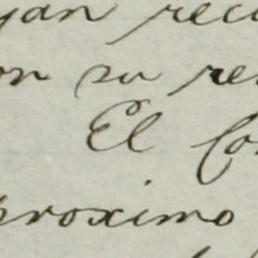 yan recu
on su re
El Co
proximo